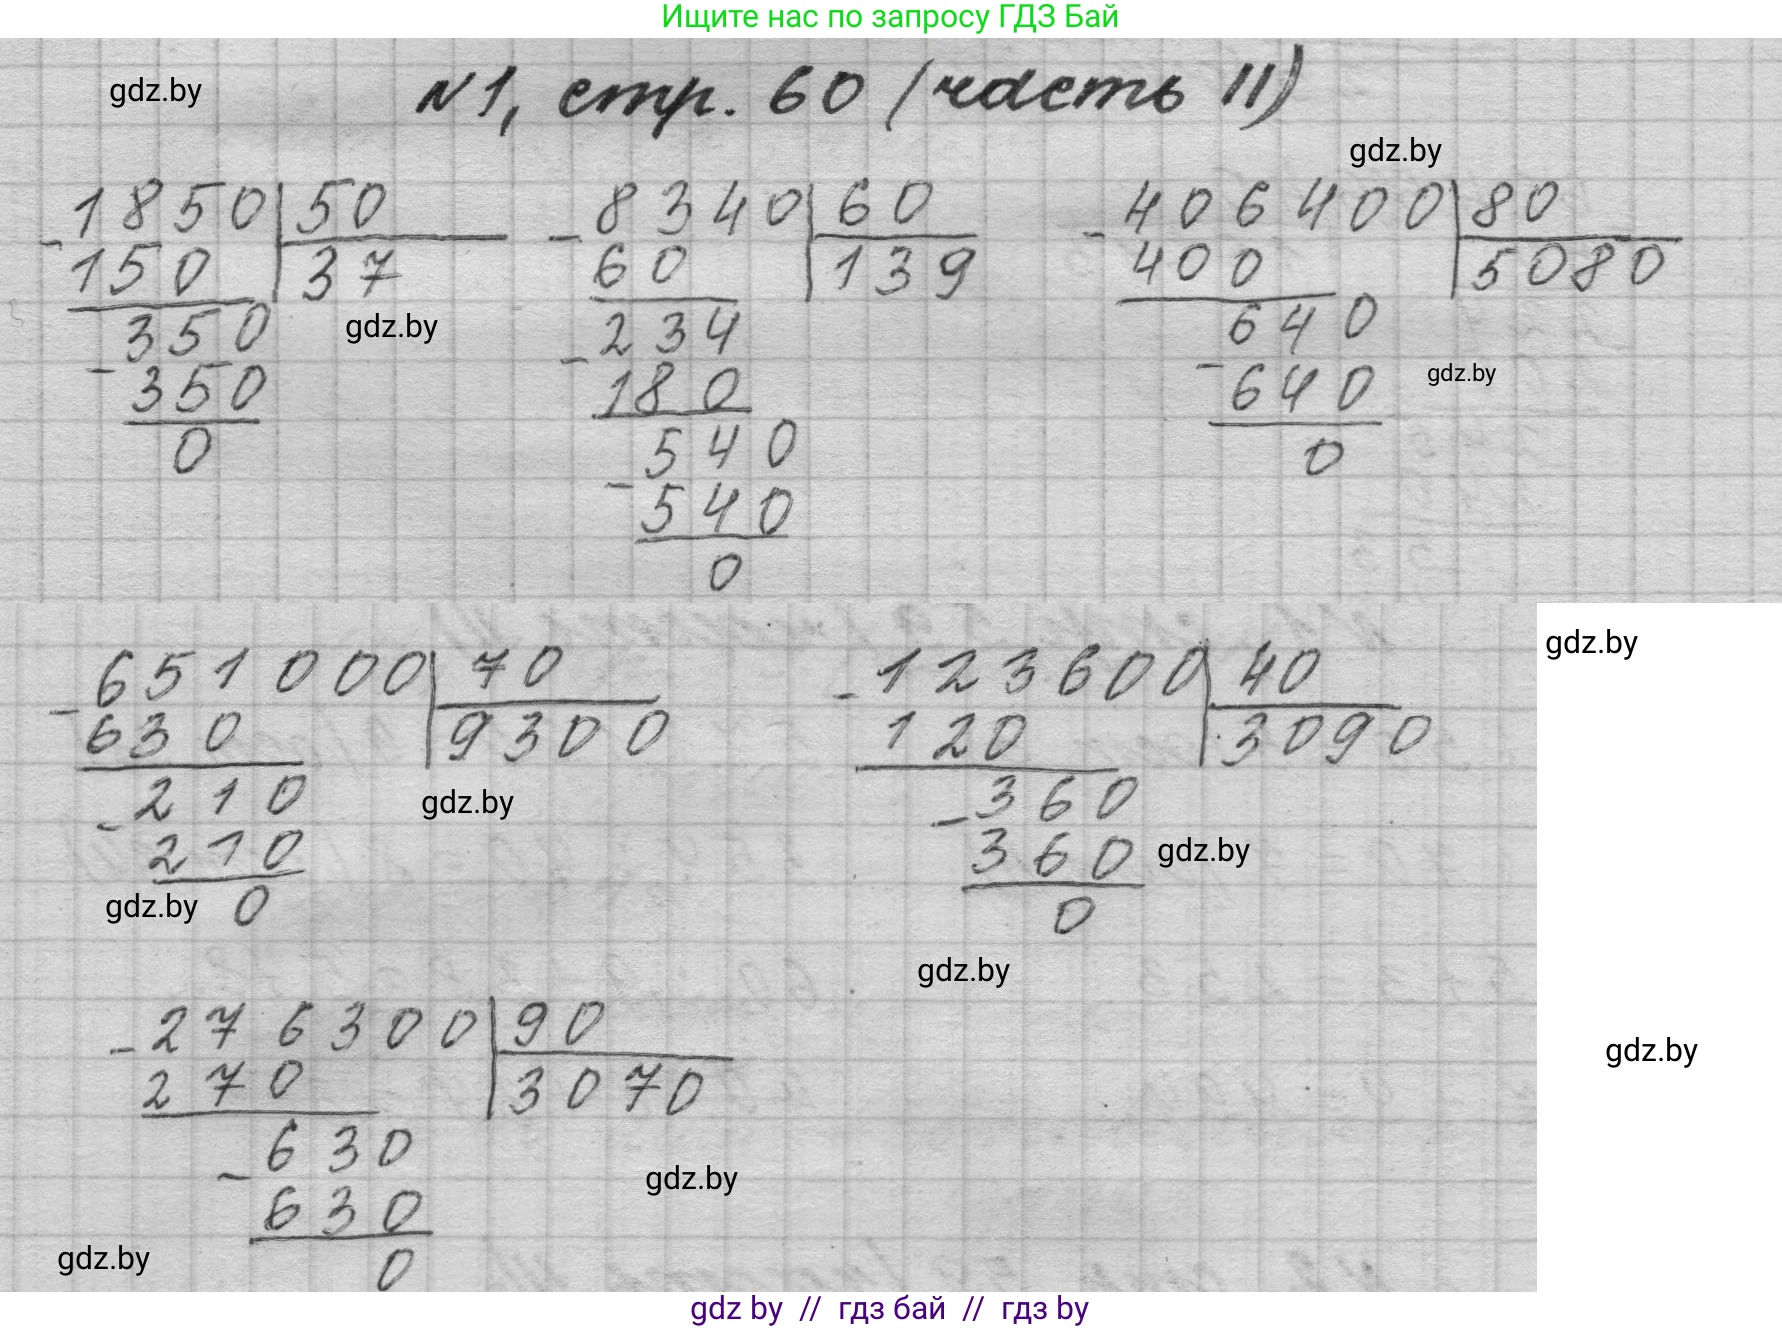 Ищите нас по запросу ГДЗ Бай
gdz.by
№1, стр. 60 (часть II)
gdz.by
- 1850 | 50
150 | 37
350
gdz.by
- 350
0
- 8340 | 60
60 | 139
- 234
180
540
- 540
0
- 406400 | 80
400 | 5080
640
gdz.by
- 640
0
- 651000 | 70
630 | 9300
- 210
gdz.by
210
gdz.by
0
- 123600 | 40
120 | 3090
- 360
360
gdz.by
0
gdz.by
gdz.by
gdz.by
- 276300 | 90
270 | 3070
- 630
gdz.by
630
gdz.by
0
gdz by // гдз бай // гдз by